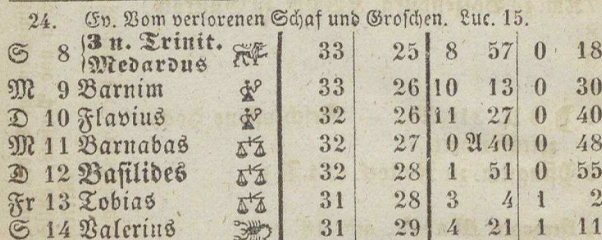 24. Ev. Vom verlorenen Schaf und Groschen. Luc. 15.
S 8 3 n. Trinit. Medardus 33 25 8 57 0 18
M 9 Barnim 33 26 10 13 0 30
D 10 Flavius 32 26 11 27 0 40
M 11 Barnabas 32 27 0 A 40 0 48
D 12 Basilides 32 28 1 51 0 55
Fr 13 Tobias 31 28 3 4 1 2
S 14 Valerius 31 29 4 21 1 11